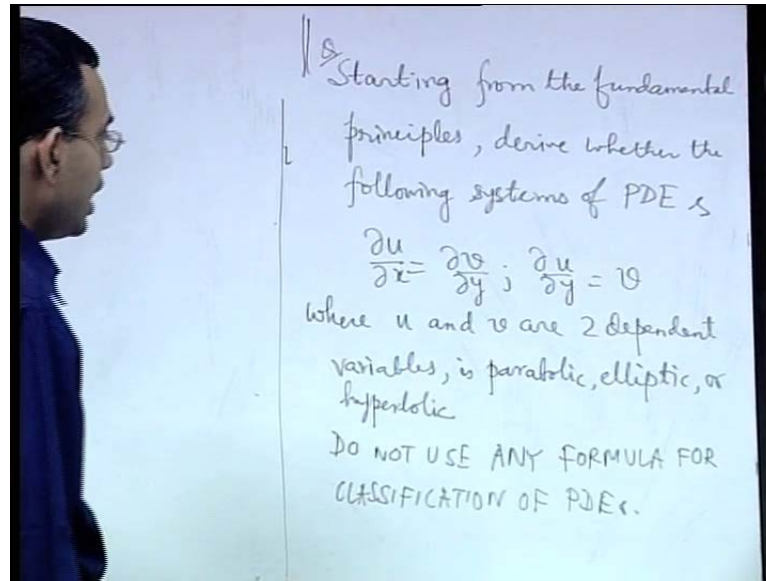 Q Starting from the fundamental
principles, derive whether the
following systems of PDEs
∂u/∂x = ∂v/∂y ; ∂u/∂y = v
where u and v are 2 dependent
variables, is parabolic, elliptic, or
hyperbolic
DO NOT USE ANY FORMULA FOR
CLASSIFICATION OF PDEs.